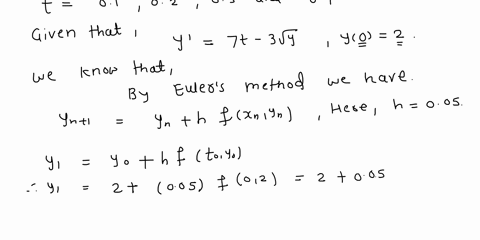 t = 0.1, 0.2, 0.3 and 0.4
Given that, y' = 7t - 3√y , y(0) = 2
we know that,
By Euler's method we have.
yn+1 = yn + h f(xn, yn) , Here, h = 0.05.
y1 = y0 + h f(t0, y0)
∴ y1 = 2 + (0.05) f(0,2) = 2 + 0.05